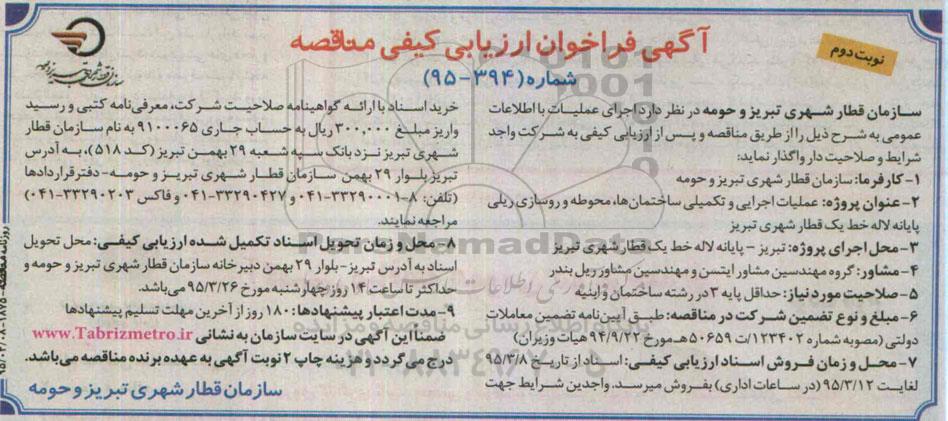 آگهی فراخوان ارزیابی کیفی مناقصه
شماره (۳۹۴-۹۵)
نوبت دوم
سازمان قطار شهری تبریز و حومه در نظر دارد اجرای عملیات با اطلاعات
عمومی به شرح ذیل را از طریق مناقصه و پس از ارزیابی کیفی به شرکت واجد
شرایط و صلاحیت دار واگذار نماید:
۱-کارفرما: سازمان قطار شهری تبریز و حومه
۲-عنوان پروژه: عملیات اجرایی و تکمیلی ساختمان ها، محوطه و روسازی ریلی
پایانه لاله خط یک قطار شهری تبریز
۳-محل اجرای پروژه: تبریز - پایانه لاله خط یک قطار شهری تبریز
۴-مشاور: گروه مهندسین مشاور ایتسن و مهندسین مشاور ریل بندر
۵-صلاحیت مورد نیاز: حداقل پایه ۳ در رشته ساختمان و ابنیه
۶-مبلغ و نوع تضمین شرکت در مناقصه: طبق آیین نامه تضمین معاملات
دولتی (مصوبه شماره ۱۲۳۴۰۲/ت۵۰۶۵۹هـ مورخ ۹۴/۹/۲۲ هیات وزیران)
۷-محل و زمان فروش اسناد ارزیابی کیفی: اسناد از تاریخ ۹۵/۳/۸
لغایت ۹۵/۳/۱۲ (در ساعات اداری) بفروش میرسد. واجدین شرایط جهت
خرید اسناد با ارائه گواهینامه صلاحیت شرکت، معرفی نامه کتبی و رسید
واریز مبلغ ۳۰۰,۰۰۰ ریال به حساب جاری ۹۱۰۰۰۶۵ به نام سازمان قطار
شهری تبریز نزد بانک سپه شعبه ۲۹ بهمن تبریز (کد ۵۱۸)، به آدرس
تبریز بلوار ۲۹ بهمن سازمان قطار شهری تبریز و حومه- دفتر قراردادها
(تلفن: ۸-۳۳۲۹۰۰۰۱-۰۴۱ و ۳۳۲۹۰۴۲۷-۰۴۱ و فاکس ۳۳۲۹۰۲۰۳-۰۴۱)
مراجعه نمایند.
۸-محل و زمان تحویل اسناد تکمیل شده ارزیابی کیفی: محل تحویل
اسناد به آدرس تبریز-بلوار ۲۹ بهمن دبیرخانه سازمان قطار شهری تبریز و حومه و
حداکثر تا ساعت ۱۴ روز چهارشنبه مورخ ۹۵/۳/۲۶ می باشد.
۹-مدت اعتبار پیشنهادها: ۱۸۰ روز از آخرین مهلت تسلیم پیشنهادها
ضمنا این آگهی در سایت سازمان به نشانی www.Tabrizmetro.ir
درج می گردد و هزینه چاپ ۲ نوبت آگهی به عهده برنده مناقصه می باشد.
سازمان قطار شهری تبریز و حومه